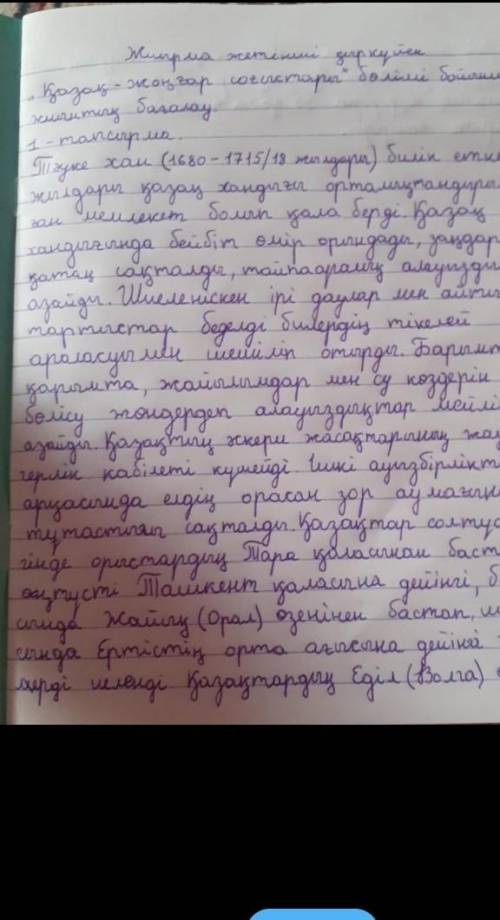 Жиырма жетінші қыркүйек
"Қазақ-жоңғар соғыстары" бөлімі бойынша
жиынтық бағалау
1-тапсырма.
Тәуке хан (1680-1715/18 жылдары) билік еткен
жылдары қазақ хандығы орталықтандырыл
ған мемлекет болып қала берді. Қазақ
хандығында бейбіт өмір орындады, заңдар
қатаң сақталды, тайпааралық алауызды
азайды. Шиеленіскен ірі даулар мен айты
тартыстар беделді билердің тікелей
араласуымен шешіліп отырды. Барымт
қарымта, жайылымдар мен су көздерін
бөлісу жөндердеп алауыздықтар мейлі
азайды. Қазақтың әскери жасақтарының жау
герлік қабілеті күшейді. Ішкі ауызбірлікт
арқасында елдің орасан зор аумағын
тұтастығы сақталды. Қазақтар солтүс
гінде орыстардың Тара қаласынан баст
оңтүсті Ташкент қаласына дейінгі, б
сында Жайық (Орал) өзенінен бастап, ш
сында Ертістің орта ағысына дейінгі
жерді иеленді Қазақтардың Еділ (Волга)